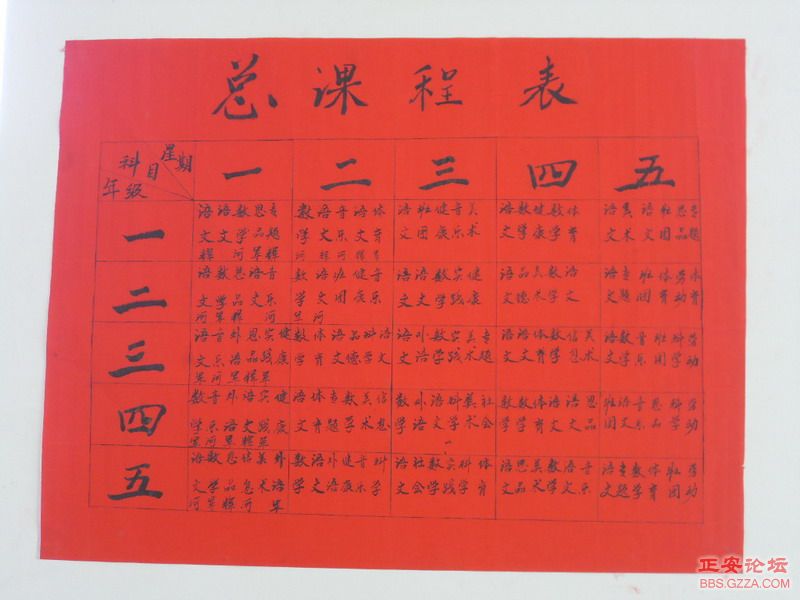 总课程表
科目 星期
年级
一 二 三 四 五
一
语语数思专 数语音语体 语班健音美 语数健数体 语美语班思专
文文学品题 学文乐文育 文团康乐术 文学康学育 文术文团品题
二
数思语音 数语班健音 语语数实健 语品美数语 语专班体劳体
文学品文乐 学文团康乐 文文学践康 文德术学文 文题团育动育
三
语音外思实健 数体语品科语 语外数实美专 语语体数信美 语数音班科劳
文乐语品践康 学育文德学文 文语学践术题 文文育学息术 文学乐团学动
四
数音外语实健 语体专数美信 数外语科美社 数数体语语思 班语音思科劳
学乐语文践康 文育题学术息 学语文学术会 学学育文文品 团文乐品学动
五
语数思信美外 数语外健音科 语社数实科体 语思美数语音 语专数体班劳
文学品息术语 学文语康乐学 文会学践学育 文品术学文乐 文题学育团动
正安论坛
BBS.GZZA.COM